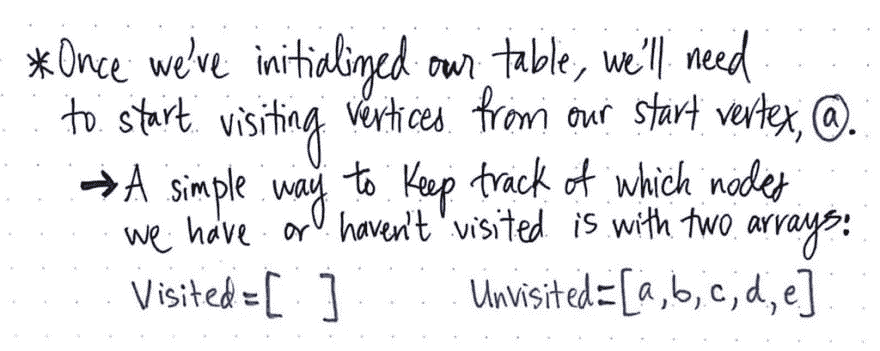 *Once we've initialized our table, we'll need
to start visiting vertices from our start vertex, ⓐ.
→ A simple way to keep track of which nodes
we have or haven't visited is with two arrays:
Visited=[ ] Unvisited=[a,b,c,d,e]